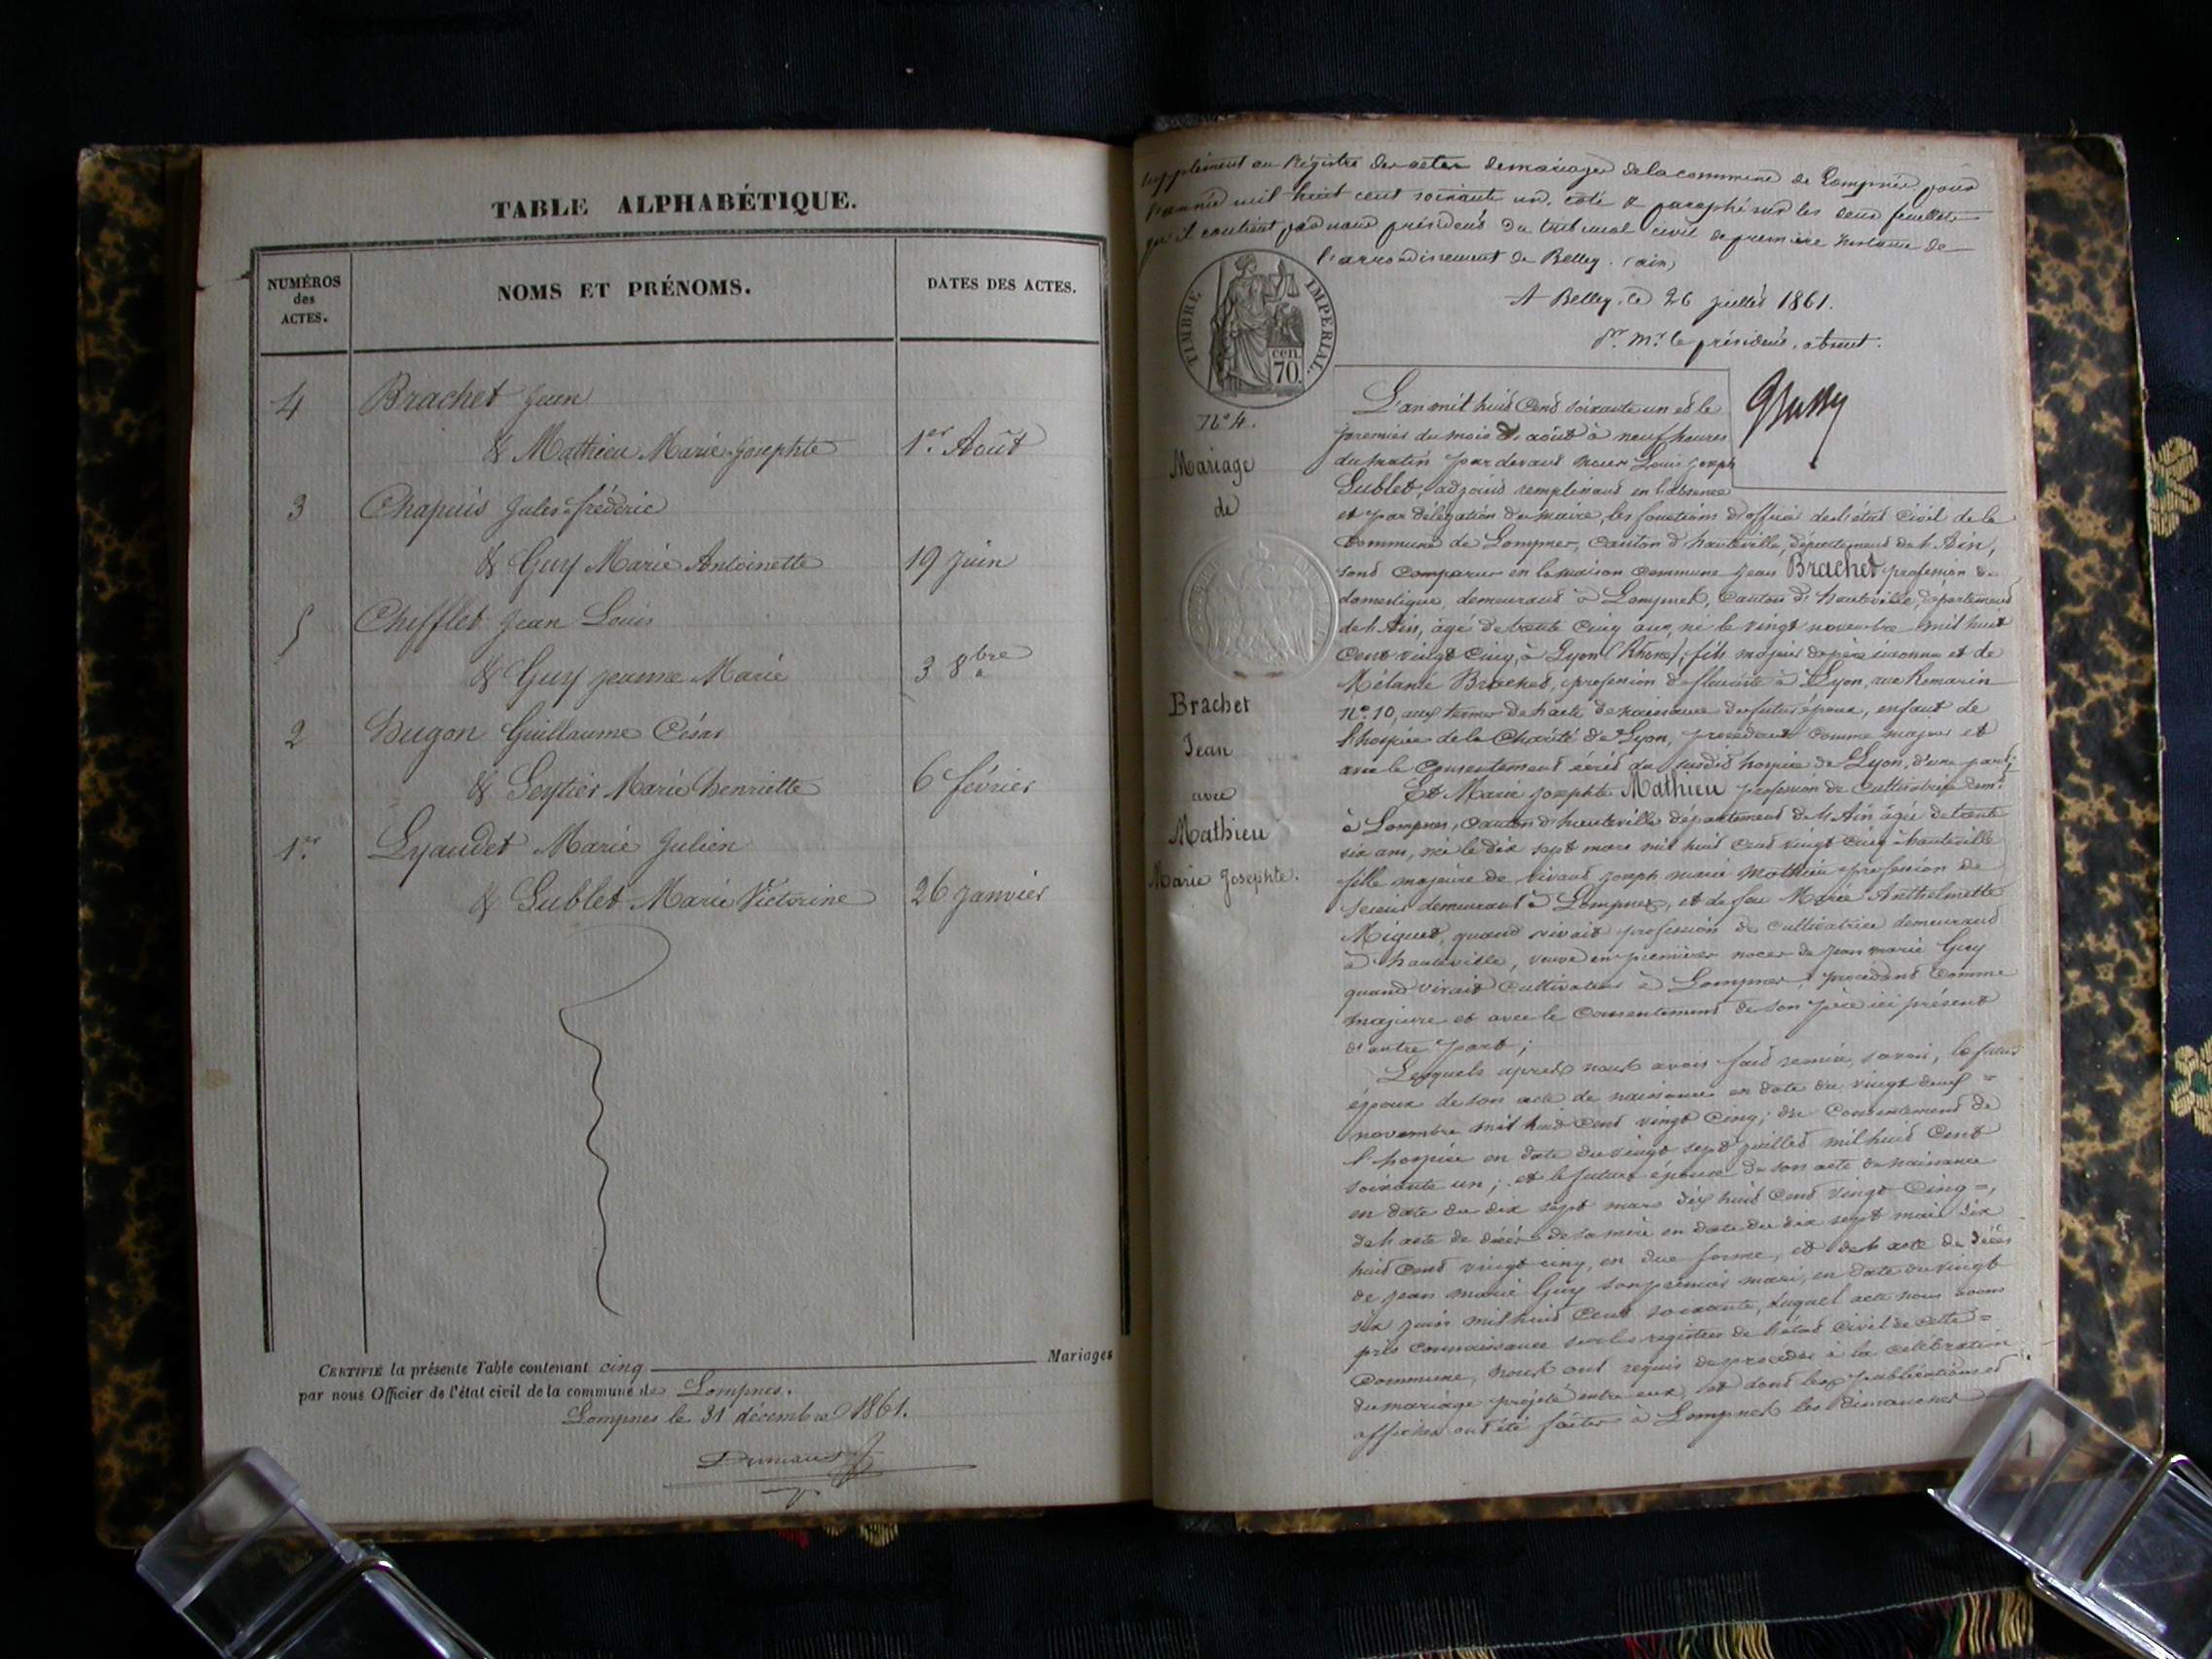 TABLE ALPHABÉTIQUE.
NUMÉROS
des
ACTES.
NOMS ET PRÉNOMS.
DATES DES ACTES.
4 Brachet Jean
& Mathieu Marie Josephte 1er Août
3 Chapuis Jules frédéric
& Guy Marie Antoinette 19 Juin
5 Chifflet Jean Louis
& Guy Jeanne Marie 3 8bre
2 Hugon Guillaume César
& Seytier Marie henriette 6 février
1er Lyaudet Marie Julien
& Sublet Marie Victorine 26 Janvier
CERTIFIÉ la présente Table contenant cinq Mariages
par nous Officier de l'état civil de la commune de Lompnes.
Lompnes le 31 décembre 1861.
Supplément au Régistre des actes de mariages de la commune de pour
l'année mil huit cent soixante un. coté & paraphé sur les deux feuillets
qu'il contient par nous président du tribunal civil de première instance de
l'arrondissement de Belley. (ain)
A Belley, le 26 juillet 1861.
pr. Mr. le président, absent.
TIMBRE IMPERIAL.
cen.
70.
N° 4.
Mariage
de
Brachet
Jean
avec
Mathieu
Marie Josephte.
L'an mil huit Cent soixante un et le
premier du mois d'août à neuf heures
du matin par devant nous Louis Joseph
Sublet, adjoint remplissant en l'absence
et par délégation du maire, les fonctions d'officier de l'état civil de la
Commune de Lompnes, Canton d'hauteville, département de l'Ain,
sont Comparus en la maison Commune Jean Brachet profession de
domestique, demeurant à Lompnes, Canton d'hauteville, département
de l'Ain, âgé de trente Cinq ans, né le vingt novembre mil huit
Cent vingt Cinq, à Lyon (Rhône), fils majeur de père inconnu et de
Mélanie Brachet, profession de fleuriste à Lyon, rue Romarin
n° 10, aux termes de l'acte de naissance du futur époux, enfant de
l'hospice de la Charité de Lyon, procédant comme majeur et
avec le Consentement écrit du susdit hospice de Lyon, d'une part;
Et Marie Josephte Mathieu profession de Cultivatrice demt
à Lompnes, Canton d'hauteville département de l'Ain âgée de trente
six ans, née le dix sept mars mil huit Cent vingt Cinq à hauteville
fille majeure de vivant Joseph marie Mathieu profession de
scieur demeurant à Lompnes, et de feu Marie Anthelmette
Miguet, quand vivait profession de Cultivatrice demeurant
à hauteville, veuve en premières noces de Jean marie Guy
quand vivait Cultivateur à Lompnes, procédant Comme
majeure et avec le Consentement de son père ici présent
d'autre part;
Lesquels après nous avoir fait remise, savoir, le futur
époux de son acte de naissance en date du vingt deux =
novembre mil huit Cent vingt Cinq; du Consentement de
l'hospice en date du vingt sept juillet mil huit Cent
soixante un; et la future épouse de son acte de naissance
en date du dix sept mars dix huit Cent vingt Cinq =,
de l'acte de décès de sa mère en date du dix sept mai dix
huit Cent vingt cinq, en due forme, et de l'acte de décès
de Jean marie Guy son premier mari, en date du vingt
six juin mil huit Cent soixante, duquel acte nous avons
pris Connaissance sur les registres de l'état Civil de cette =
Commune, nous ont requis de procéder à la Célébration
du mariage projeté entre eux, et dont les publications et
affiches ont été faites à Lompnes les Dimanches